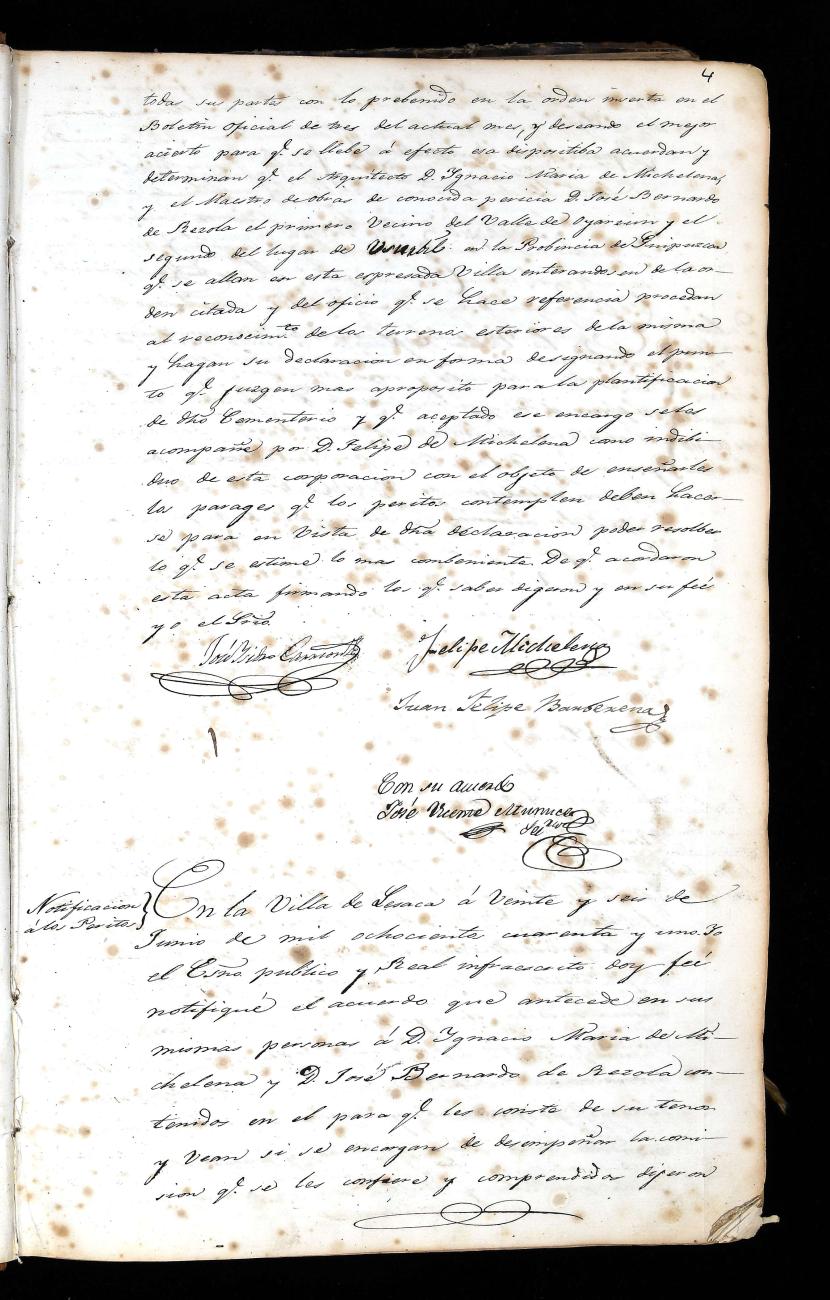 4
toda sus partes con lo prebenido en la orden inserta en el
Boletin oficial de tres del actual mes, y deseando el mejor
acierto para q.e se llebe á efecto esa dispositiba acuerdan y
determinan q.e el Arquitecto D. Ygnacio Maria de Michelena,
y el Maestro de obras de conocida pericia D. José Bernardo
de Rezola el primero Vecino del Valle de Oyarzun y el
segundo del lugar de Usurbil en la Probincia de Guipuzcoa
q.e se allan en esta espresada Villa enterandosen de la or-
den citada y del oficio q.e se hace referencia procedan
al reconocim.to de los terrenos esteriores de la misma
y hagan su declaracion en forma designando el pun-
to q.e juzgen mas aproposito para la plantificacion
de dho Cementerio y q.e aceptado ese encargo se les
acompañe por D. Felipe de Michelena como indibi-
duo de esta corporacion con el objeto de enseñarles
los parages q.e los peritos contemplen deben hacer-
se para en vista de dha declaracion poder resolber
lo q.e se estime lo mas combeniente. De q.e acordaron
esta acta firmando los q.e saber digeron y en su feé
yo el Srio.
José Ysidro
Felipe Michelena
Juan Felipe Barberena
Con su acuerdo
José Vicente
Notificacion
á los Peritos
En la Villa de Lesaca á Veinte y seis de
Junio de mil ochociento cuarenta y uno. Yo
el Esno. publico y Real infraescrito doy feé
notifiqué el acuerdo que antecede en sus
mismas personas á D. Ygnacio Maria de Mi-
chelena y D. José Bernardo de Rezola con-
tenidos en el para q.e les conste de su tenor
y vean si se encargan de desempeñar la comi-
sion q.e se les confiere y comprendidos digeron